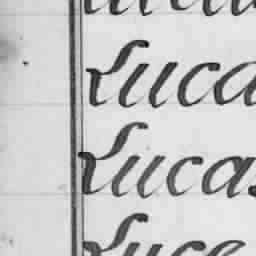 Luca
Lucas
Luce